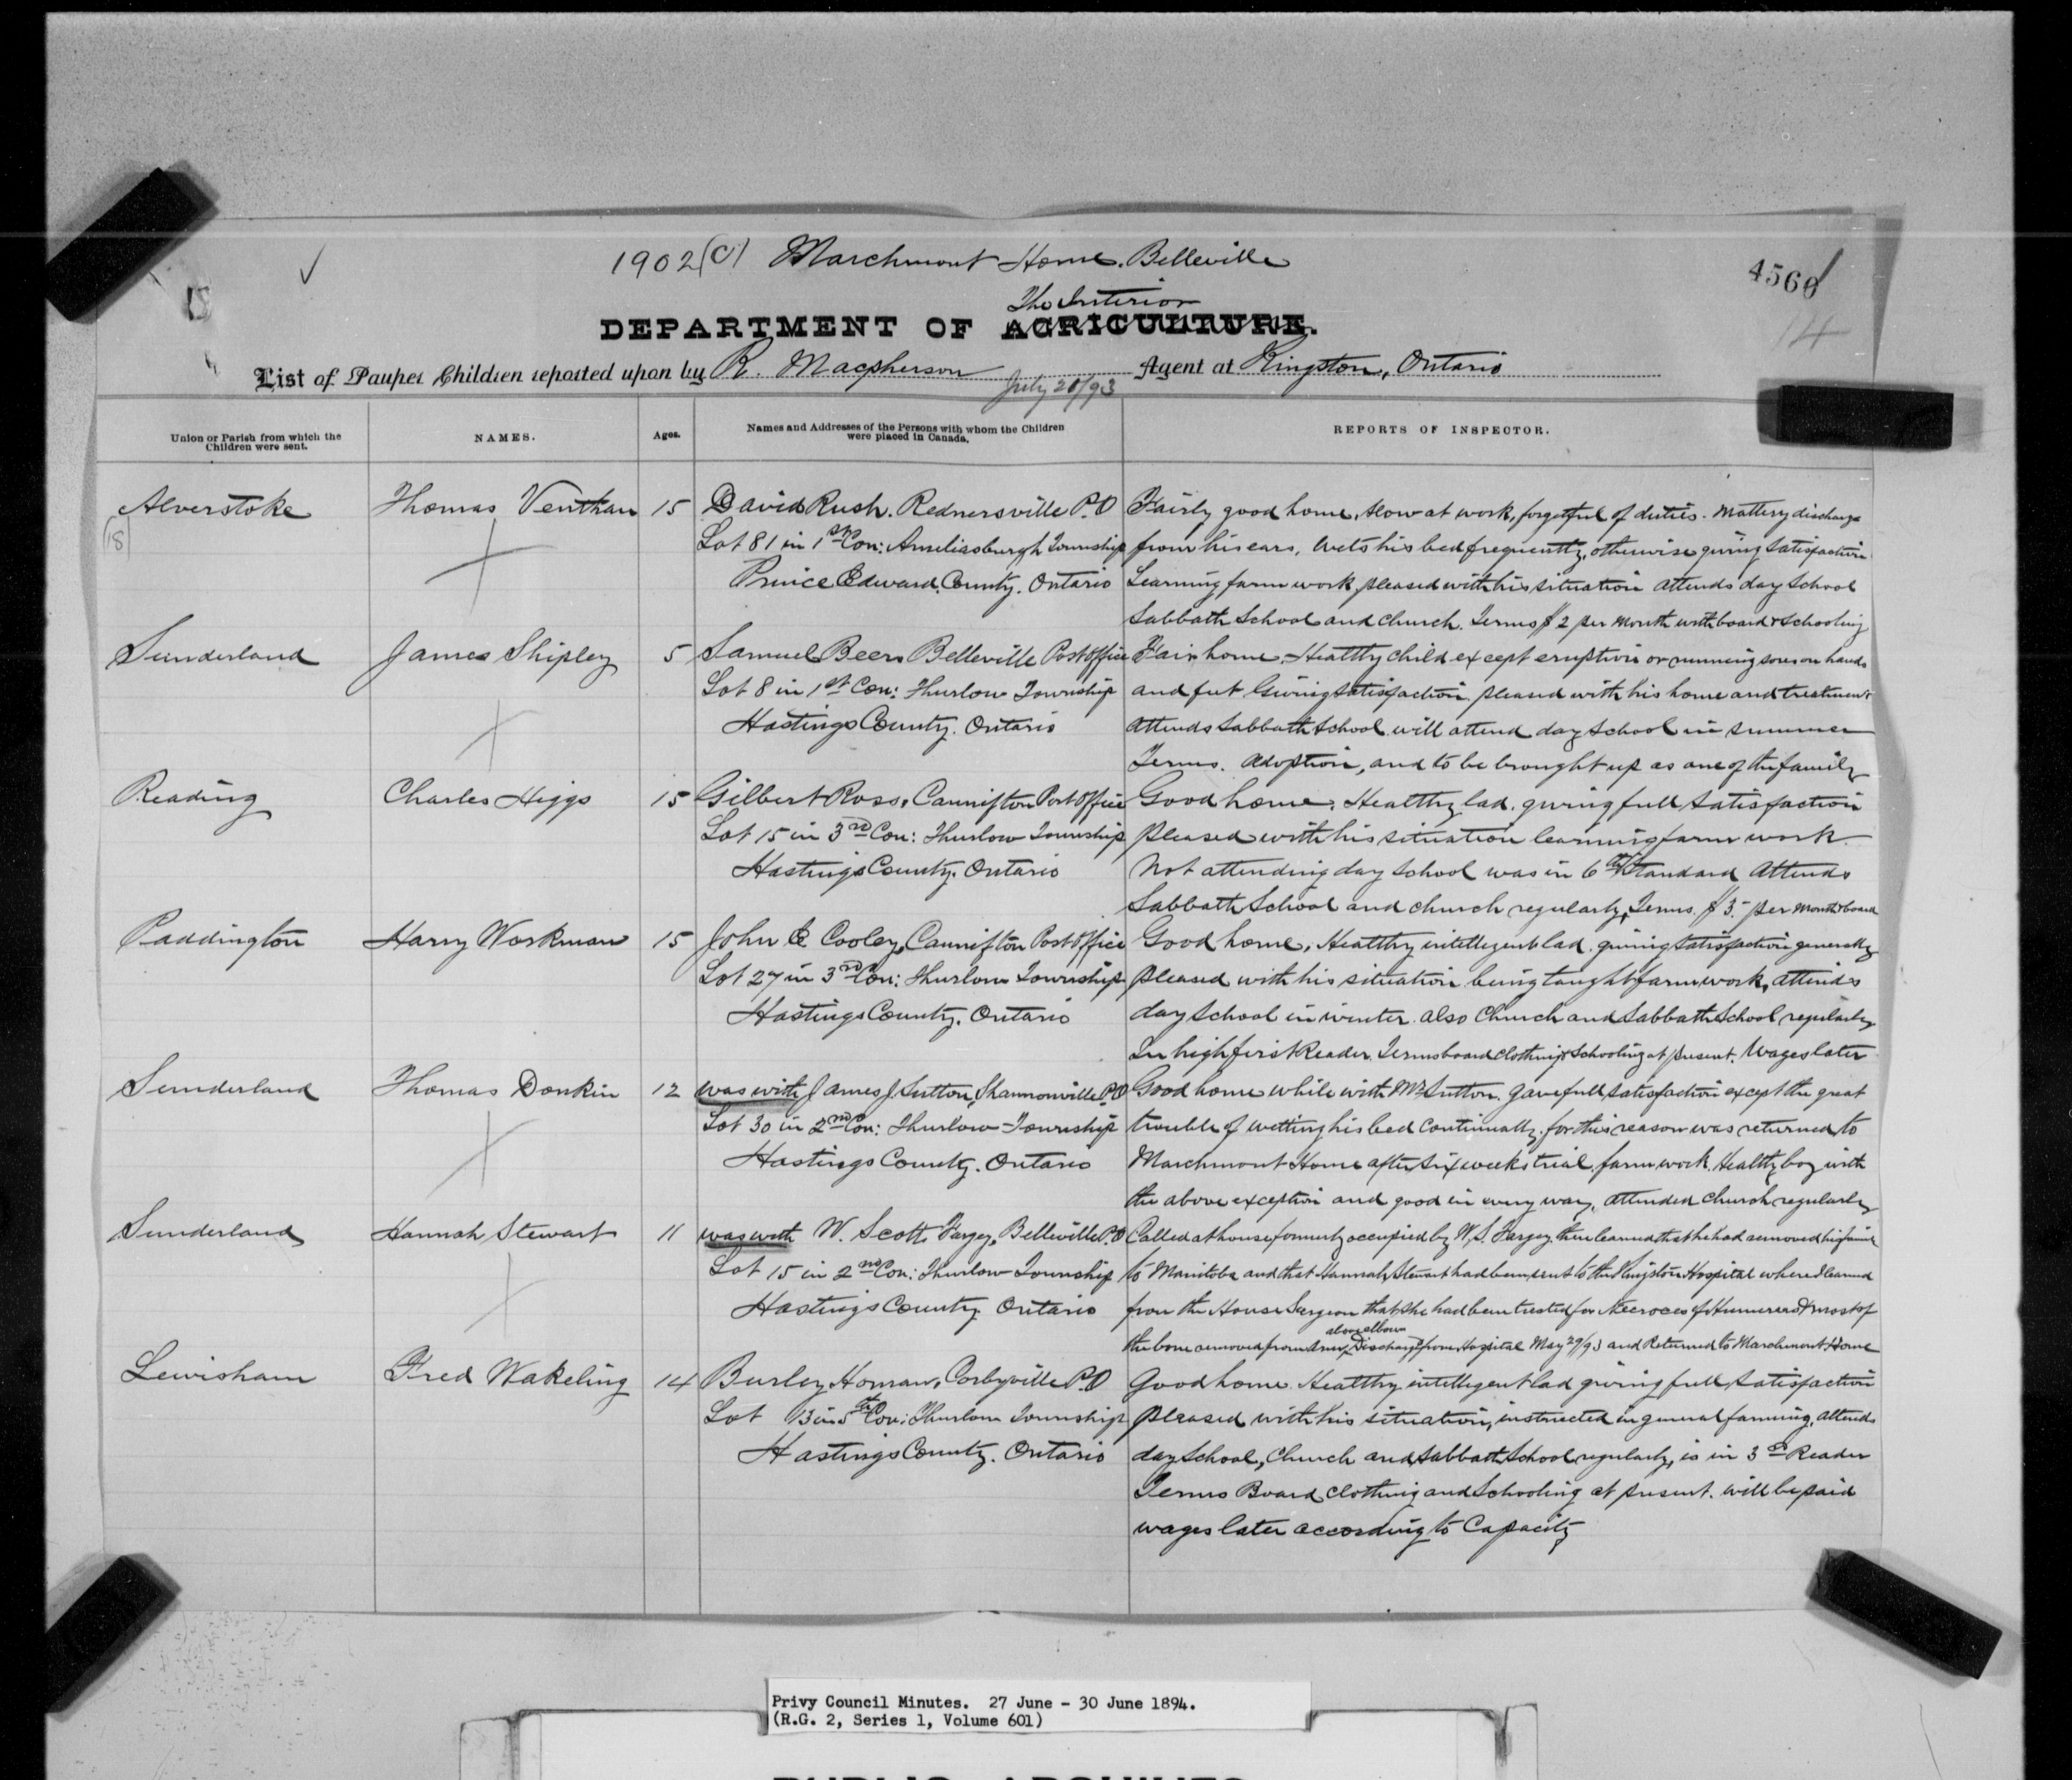 1902(C) Marchmont Home. Belleville
4566
14
18
The Interior
DEPARTMENT OF AGRICULTURE.
List of Pauper Children reported upon by R. Macpherson Agent at Kingston, Ontario
July 20/93
Union or Parish from which the Children were sent.
NAMES.
Ages.
Names and Addresses of the Persons with whom the Children were placed in Canada.
REPORTS OF INSPECTOR.
Alverstoke Thomas Venthan 15 David Rush. Rednersville P.O Fairly good home, slow at work, forgetful of duties. Mattery discharge
18
Lot 81 in 1st Con: Ameliasburgh Township from his ears, wets his bed frequently, otherwise giving satisfaction
Prince Edward County. Ontario Learning farm work, pleased with his situation attends day School
Sabbath School and church. Terms $2 per month with board & schooling
Sunderland James Shipley 5 Samuel Beers Belleville Post office Fair home. Healthy child except eruption or running sores on hands
Lot 8 in 1st Con: Thurlow Township and feet. Giving satisfaction. pleased with his home and treatment
Hastings County. Ontario attends Sabbath School will attend day School in summer
Terms. Adoption, and to be brought up as one of the family
Reading Charles Higgs 15 Gilbert Ross, Cannifton Post office Good home. Healthy lad. giving full satisfaction
Lot 15 in 3rd Con: Thurlow Township pleased with his situation learning farm work
Hastings County. Ontario Not attending day School was in 6th Standard Attends
Sabbath School and church regularly, Terms. $3 per month & board
Paddington Harry Workman 15 John E Cooley, Cannifton Post Office Good home, Healthy intelligent lad. giving satisfaction generally
Lot 27 in 3rd Con: Thurlow Township pleased with his situation being taught farm work, attends
Hastings County. Ontario day School in winter also Church and Sabbath School regularly
In high first Reader. Terms board clothing & schooling at present. Wages later
Sunderland Thomas Donkin 12 was with James J Sutton, Shannonville P.O Good home while with Mr Sutton. gave full satisfaction except the great
Lot 30 in 2nd Con: Thurlow Township trouble of wetting his bed continually. for this reason was returned to
Hastings County. Ontario Marchmont Home after six weeks trial. farm work. Healthy boy with
the above exception and good in every way, attended church regularly
Sunderland Hannah Stewart 11 was with W. Scott Fargey, Belleville P.O Called at house formerly occupied by W.S. Fargey. then learned that he had removed his family
Lot 15 in 2nd Con: Thurlow Township to Manitoba and that Hannah Stewart had been sent to the Kingston Hospital where I learned
Hastings County Ontario from the House Surgeon that she had been treated for Necroces of Humerers & most of
above elbow
the bone removed from Arm, Discharged from Hospital May 29/93 and Returned to Marchmont Home
Lewisham Fred Wakeling 14 Burley Homan, Corbyville P.O Good home. Healthy intelligent lad giving full satisfaction
Lot 13 in 5th Con: Thurlow Township pleased with his situation, instructed in general farming, attends
Hastings County. Ontario day School, Church and Sabbath School regularly, is in 3rd Reader
Terms Board clothing and Schooling at present. will be paid
wages later according to Capacity
Privy Council Minutes. 27 June - 30 June 1894.
(R.G. 2, Series 1, Volume 601)
PUBLIC ARCHIVES